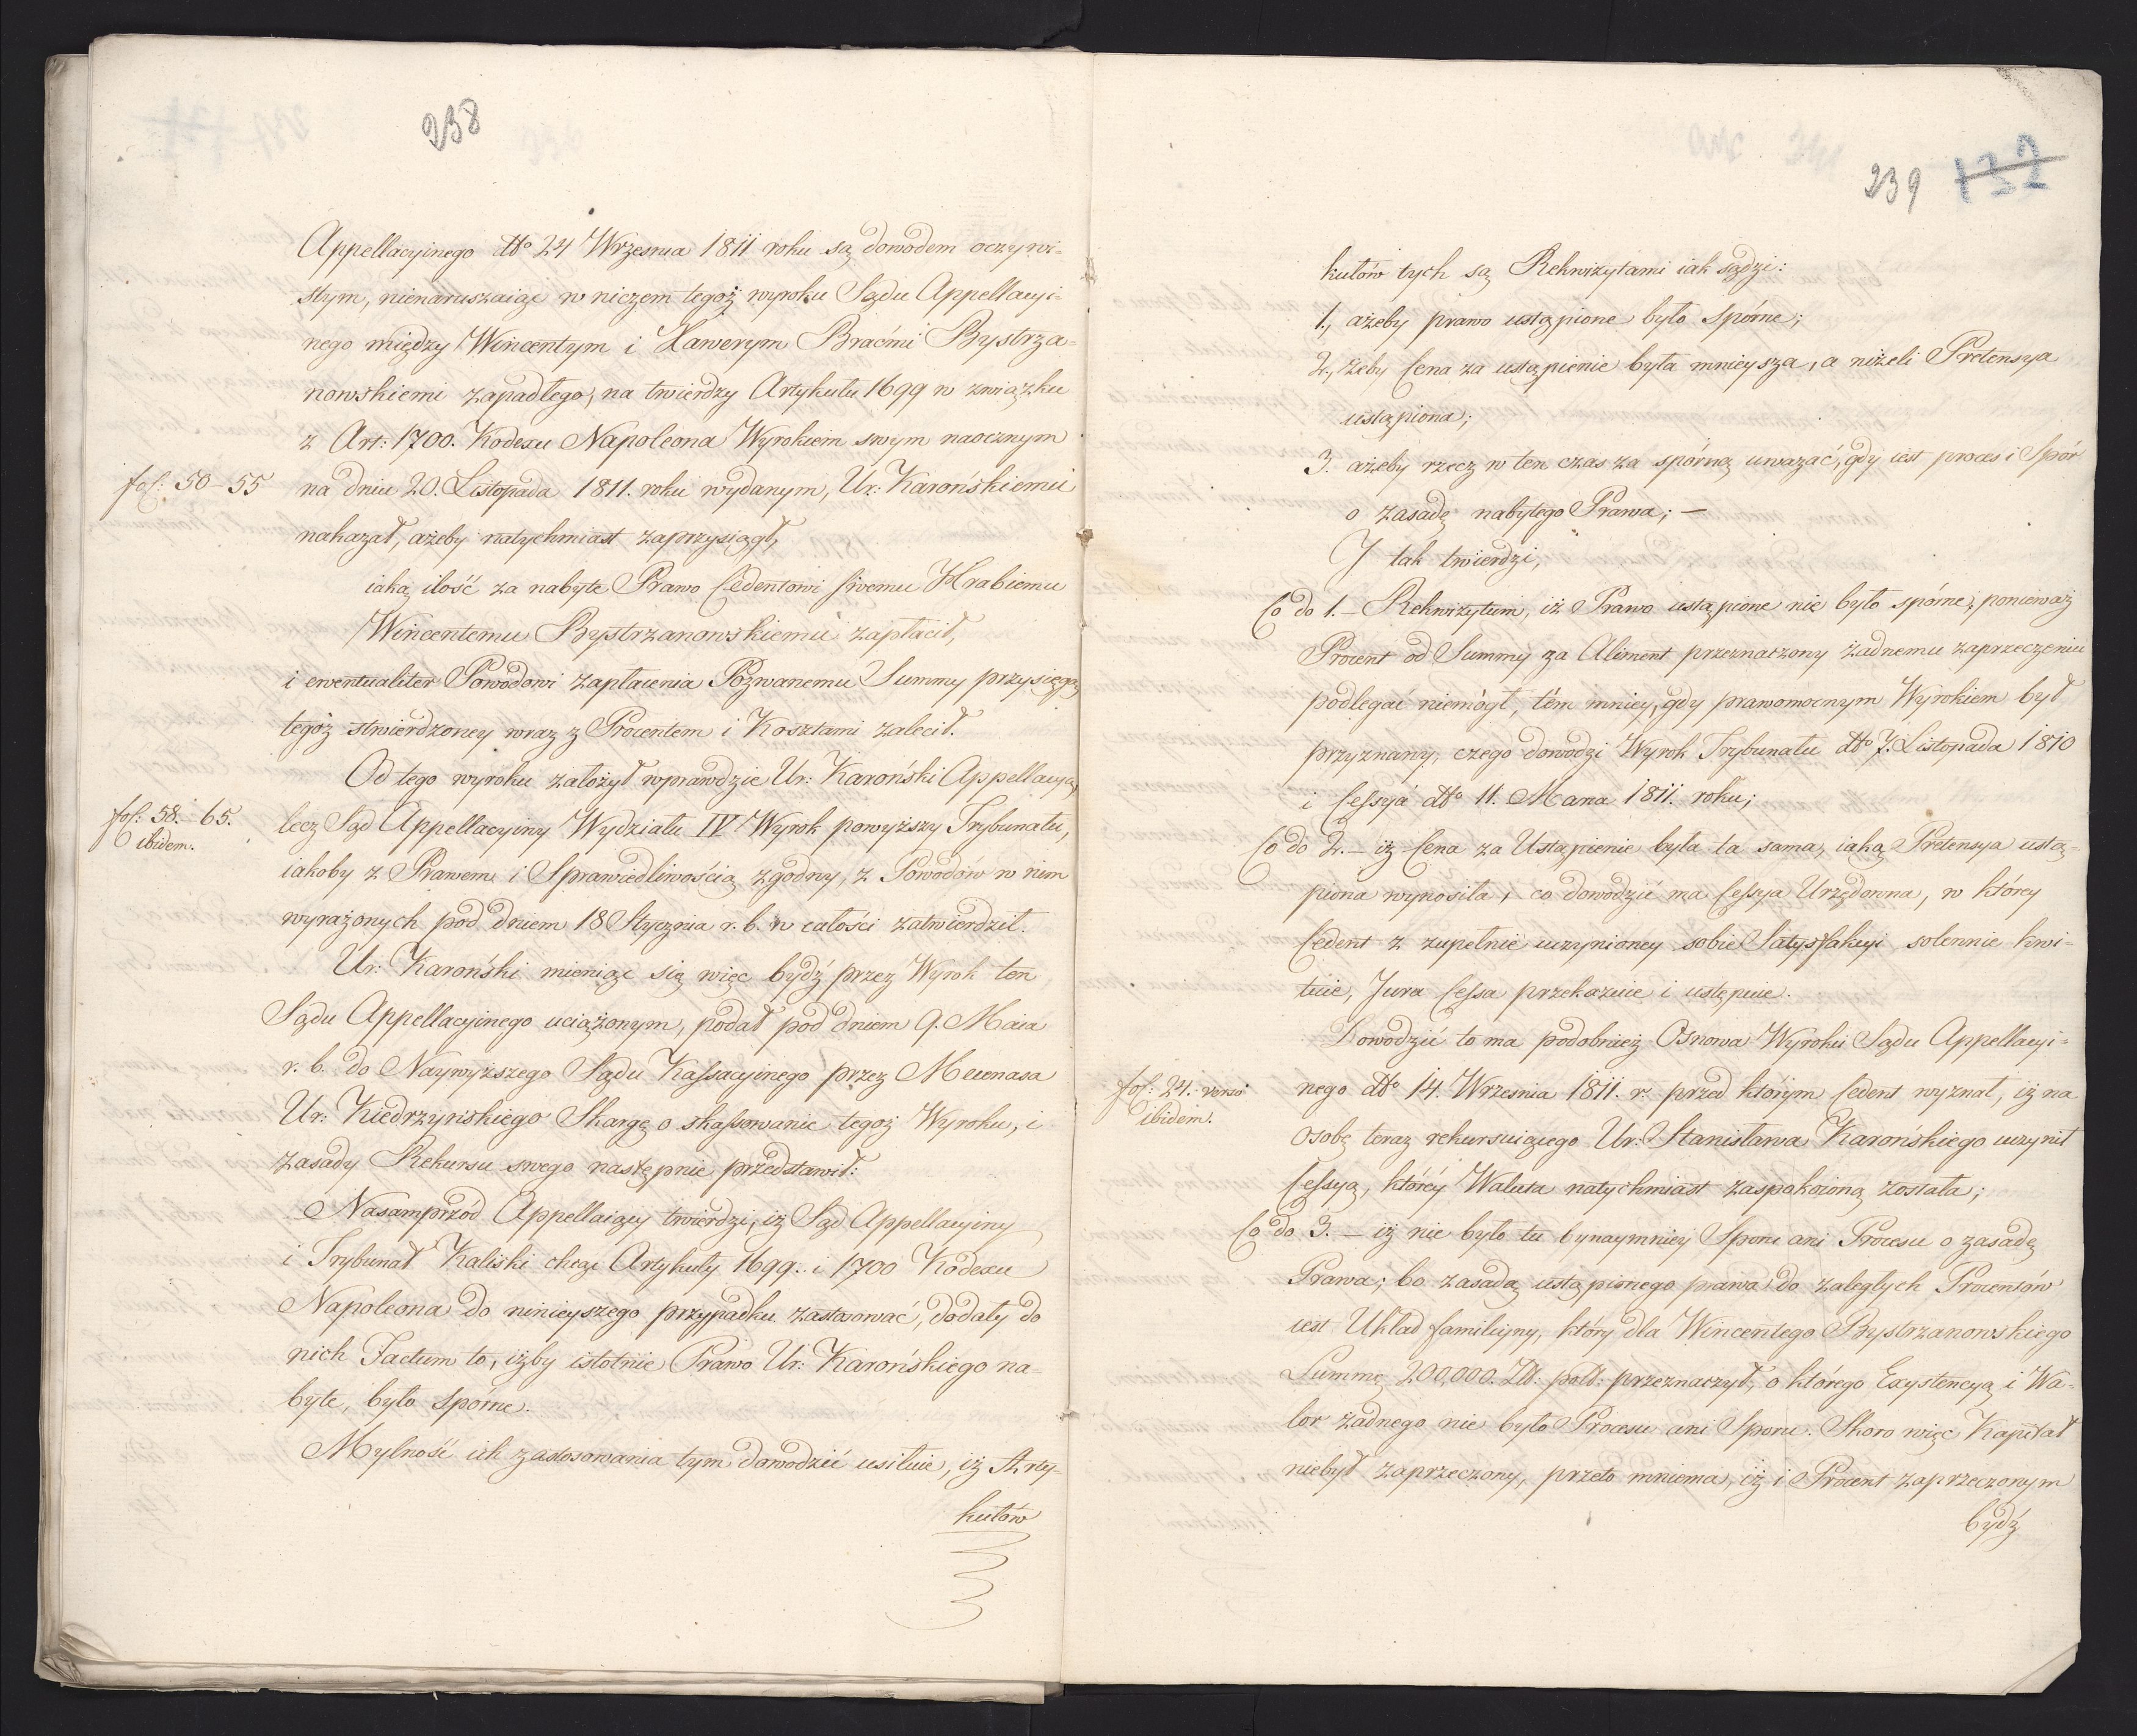 238
Appellacyinego dto 24 Wrzesnia 1811 roku są dowodem oczywi-
stym, nienaruszaiąc w niczem tegoż wyroku Sądu Appellacyi-
nego między Wincentym i Xawerym Braćmi Bystrza-
nowskiemi zapadłego, na twierdzy Artykułu 1699 w związku
z Art: 1700. Kodexu Napoleona Wyrokiem swym naocznym
fol: 50-55 na dniu 20. Listopada 1811. roku wydanym, Ur: Karońskiemu
nakazał, ażeby natychmiast zaprzysiągł,
iaką ilość za nabyte Prawo Cedentowi swemu Hrabiemu
Wincentemu Bystrzanowskiemu zapłacił,
i ewentualiter Powodowi zapłacenia Pozwanemu Summy przysięgą
tegoż stwierdzoney wraz z Procentem i Kosztami zalecił.
Od tego wyroku założył wprawdzie Ur: Karoński Appellacyą,
fol: 58.-65. lecz Sąd Appellacyiny Wydziału IV Wyrok powyższy Trybunału,
ibidem.
iakoby z Prawem i Sprawiedliwością zgodny, z Powodów w nim
wyrażonych pod dniem 18 Stycznia r. b. w całości zatwierdził.
Ur: Karoński mieniąc się więc bydź przez Wyrok ten
Sądu Appellacyinego uciążonym, podał pod dniem 9. Maia
r. b. do Naywyższego Sądu Kassacyinego przez Mecenasa
Ur: Kiedrzyńskiego Skargę o skassowanie tegoż Wyroku, i
zasady Rekursu swego następnie przedstawił:
Nasamprzód Appellaiący twierdzi, iż Sąd Appellacyiny
i Trybunał Kaliski chcąc Artykuły 1699. i 1700 Kodexu
Napoleona do ninieyszego przypadku zastosować, dodały do
nich Factum to, iżby istotnie Prawo Ur: Karońskiego na-
byte, było spórne.
Mylność ich zastosowania tym dowodzić usiłuie, iż Arty-
kułów
239 132
kułów tych są Rekwizytami iak sądzi:
1., ażeby prawo ustąpione było spórne;
2., żeby Cena za ustąpienie była mnieysza, a niżeli Pretensya
ustąpiona;
3. ażeby rzecz w ten czas za spórną uważać, gdy iest proces i Spór
o zasadę nabytego Prawa; -
I tak twierdzi,
Co do 1. - Rekwizytum, iż Prawo ustąpione nie było spórne, ponieważ
Procent od Summy za Aliment przeznaczony żadnemu zaprzeczeniu
podlegać niemógł, tém mniey, gdy prawomocnym Wyrokiem był
przyznany, czego dowodzi Wyrok Trybunału dto 7. Listopada 1810
i Cessya dto 11. Marca 1811. roku;
Co do 2. - iż Cena za Ustąpienie była ta sama, iaką Pretensya ustą-
piona wynosiła, co dowodzić ma Cessya Urzędowna, w którey
Cedent z zupełnie uczynioney sobie Satysfakcyi solennie kwi-
tuie, Jura Cessa przekazuie i ustępuie.
Dowodzić to ma podobnież Osnowa Wyroku Sądu Appellacyi-
fol: 24. verso nego dto 14. Wrzesnia 1811. r. przed którym Cedent wyznał, iż na
ibidem.
Osobę teraz rekursuiącego Ur: Stanisława Karońskiego uczynił
Cessyą, którey Waluta natychmiast zaspokoioną została;
Co do 3. - iż nie było tu bynaymniey Sporu ani Procesu o zasadę
Prawa; bo zasadą ustąpionego prawa do zaległych Procentów
iest Układ familiyny, który dla Wincentego Bystrzanowskiego
Summę 200,000. Zł. pol: przeznaczył, o którego Exystencyą i Wa-
lor żadnego nie było Procesu ani Sporu. Skoro więc Kapitał
niebył zaprzeczony, przeto mniema, iż i Procent zaprzeczonym
bydź